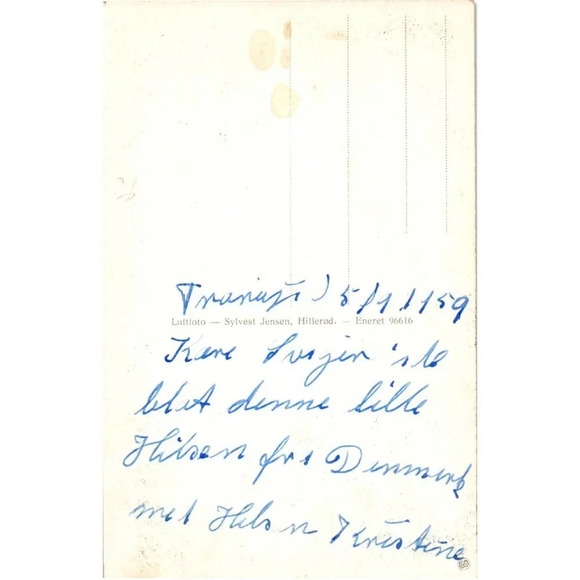 5/1 1159
Luftfoto — Sylvest Jensen, Hillerød. — Eneret 96616
Kere
blot denne lille
Hilsen fra Denmark
met Hilsn Kristine